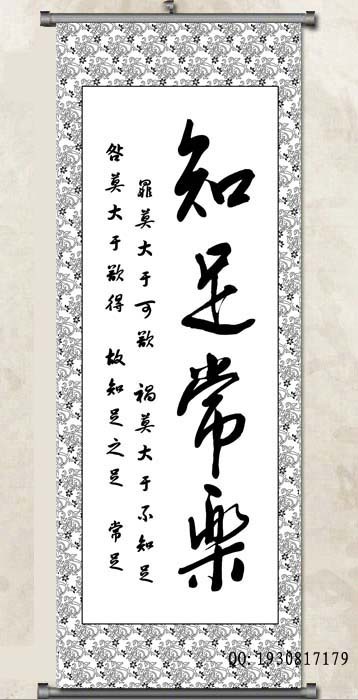 知足常樂
罪莫大于可欲 禍莫大于不知足
咎莫大于欲得 故知足之足 常足
QQ: 1930817179